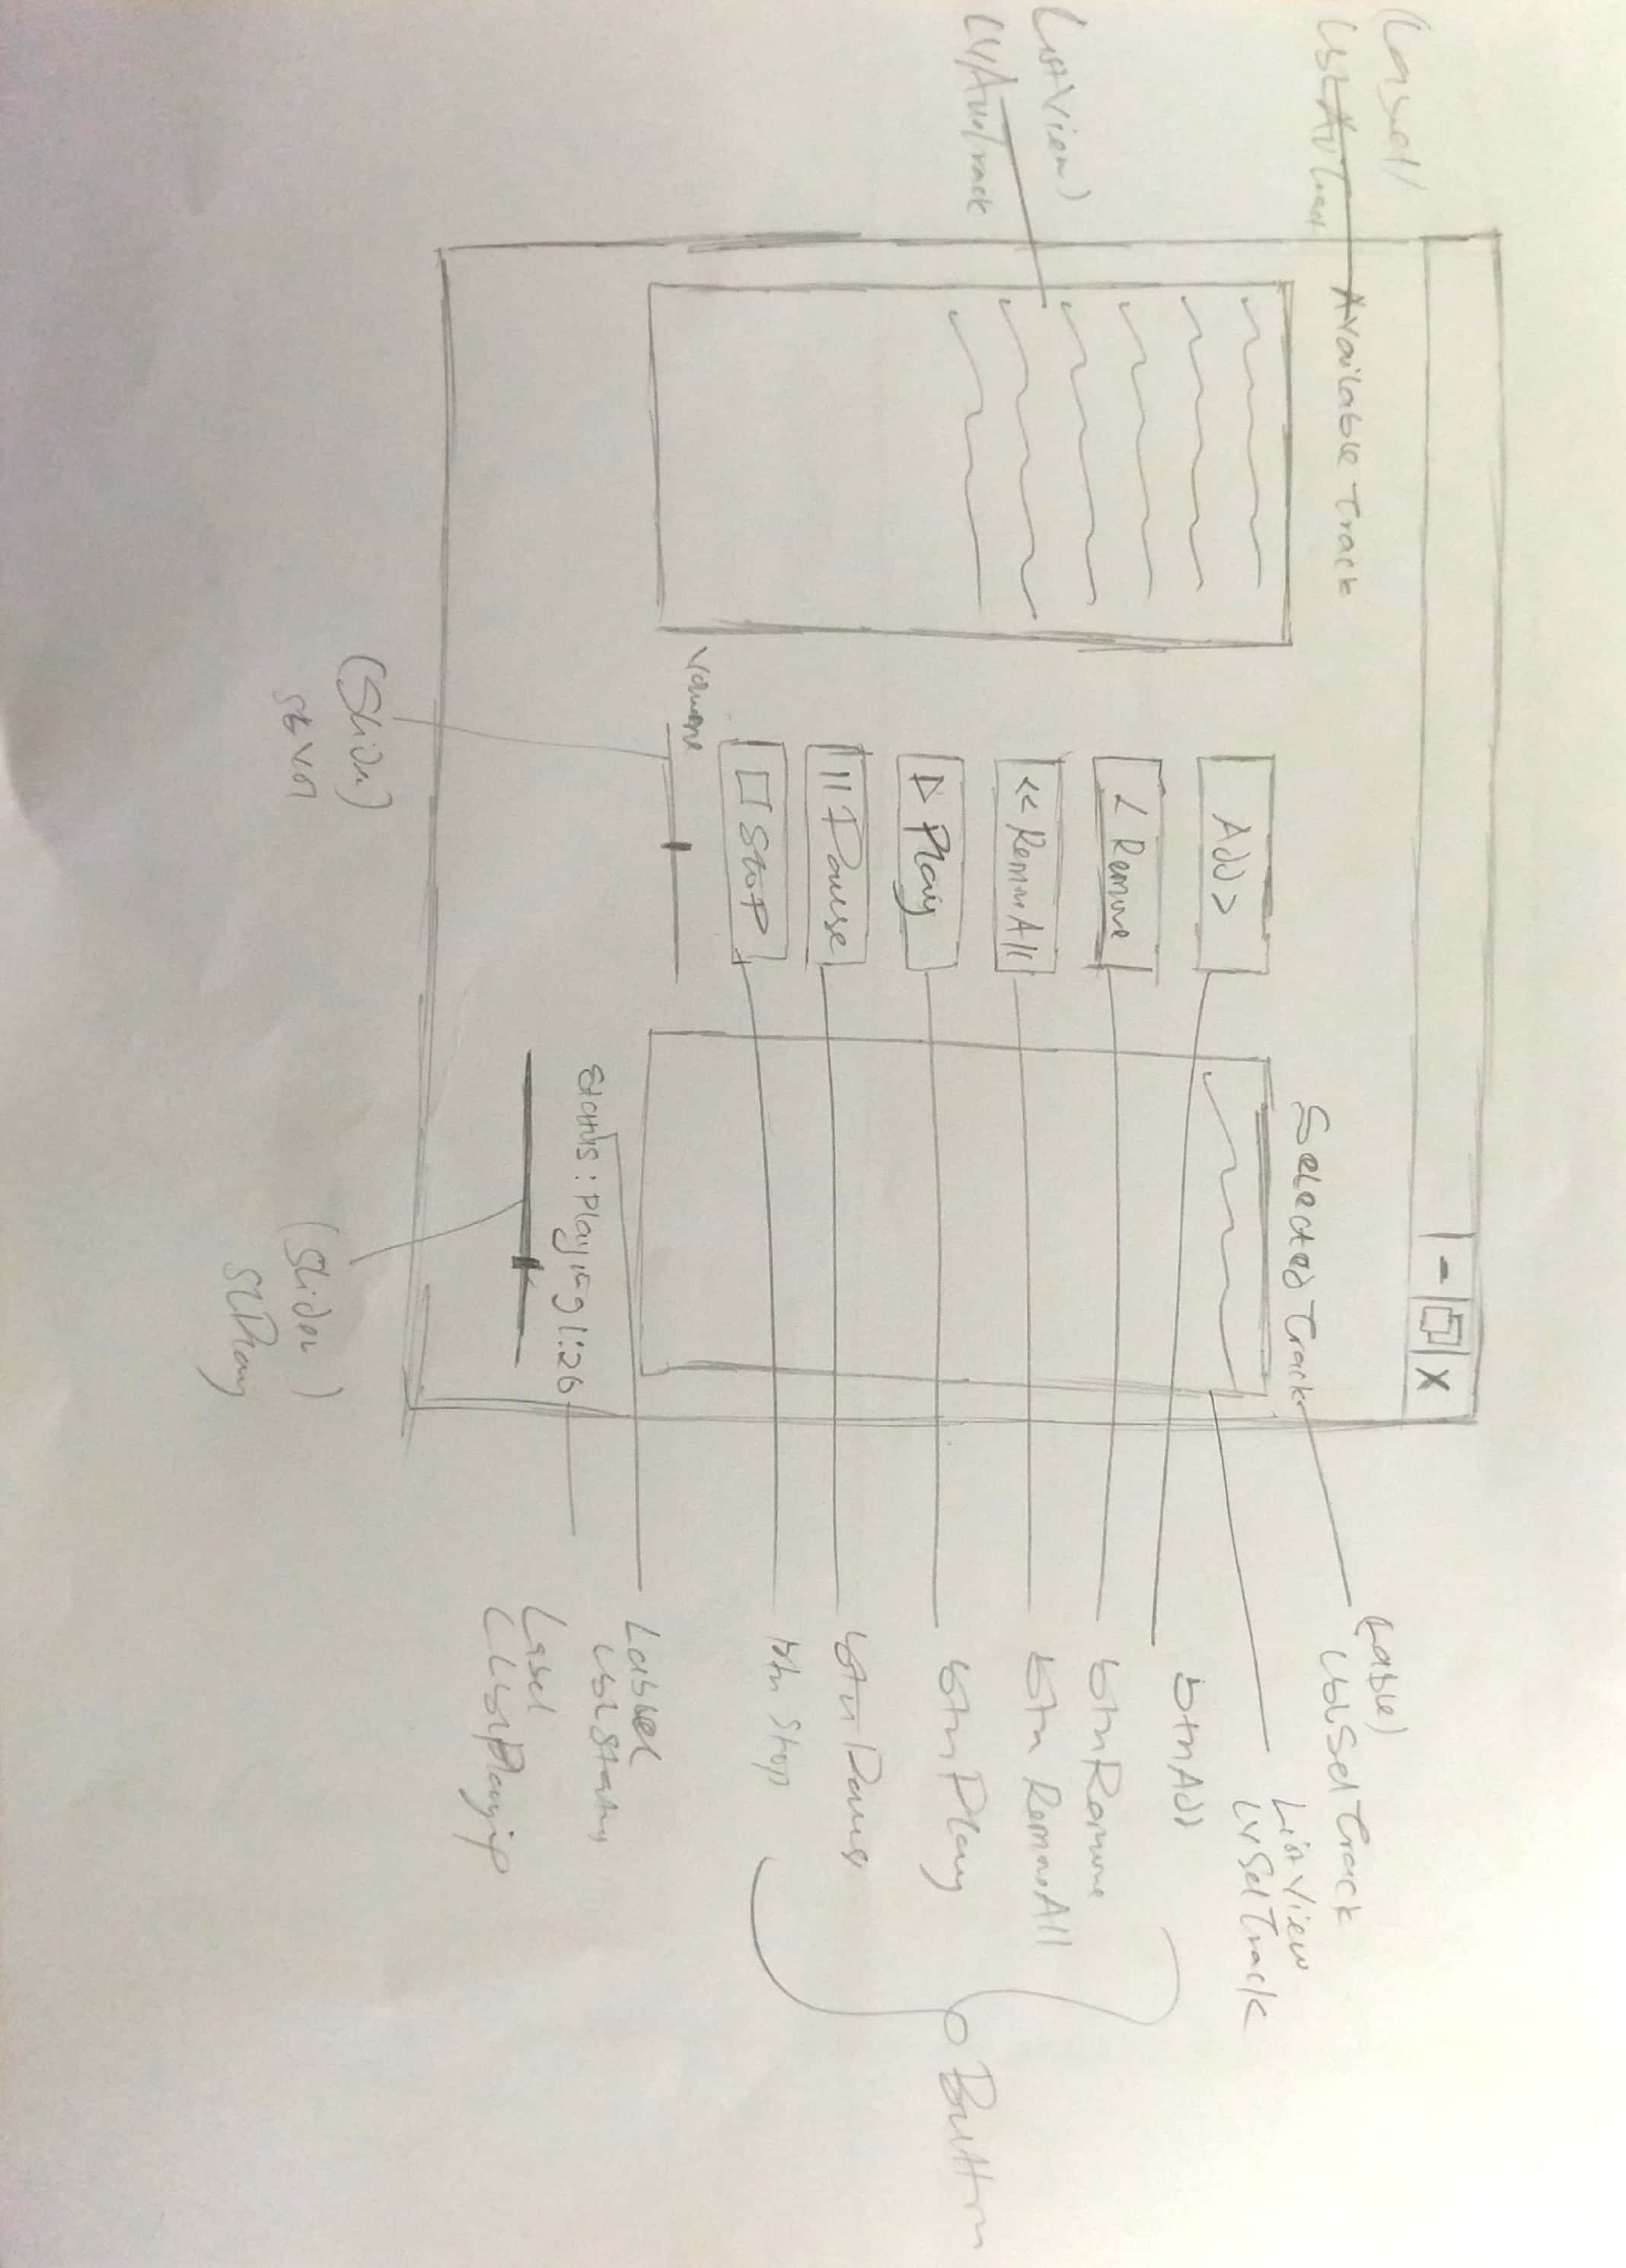 (Label)
lblAvTrack
Available Track
(ListView)
lvAvaTrack
Add >
< Remove
<< RemovAll
▷ Play
II Pause
□ Stop
Volume
(Slider)
Selected Track
Status : Playing 1:26
(Slider)
SLPlay
- X
(Lable)
lblSelTrack
List View
lvSelTrack
btnAdd
btnRemove
btn RemovAll
btn Play
btn Paus
btn Stop
Button
Label
lblStatus
Label